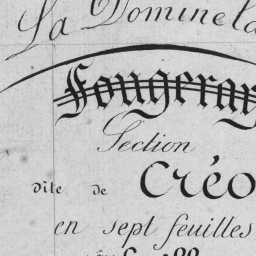 La Dominela
Fougeray
Section
dite de Créo
en sept feuilles